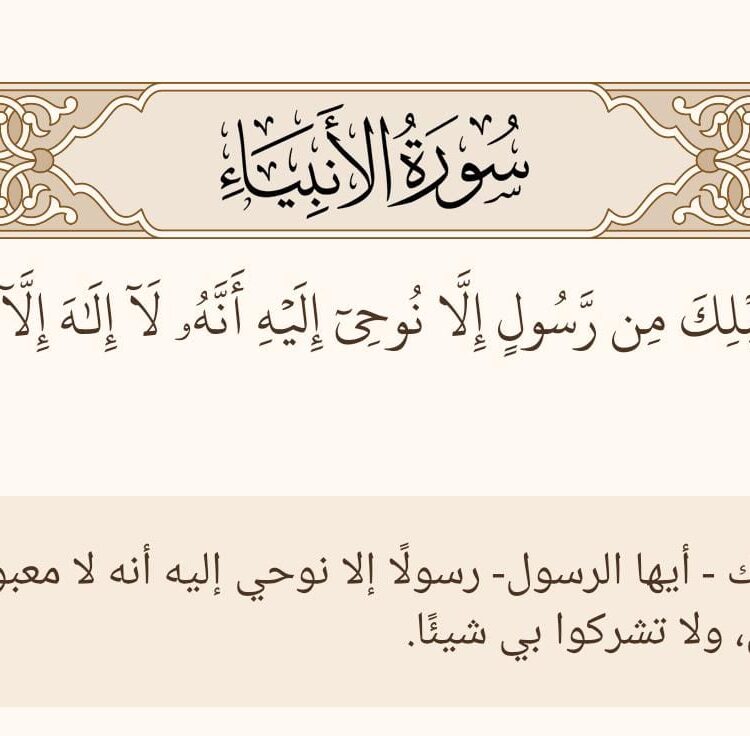 سُورَةُ الأَنبِيَاءِ
مِن رَّسُولٍ إِلَّا نُوحِىٓ إِلَيْهِ أَنَّهُۥ لَآ إِلَـٰهَ إِلَّآ
- أيها الرسول- رسولًا إلا نوحي إليه أنه لا
، ولا تشركوا بي شيئًا.